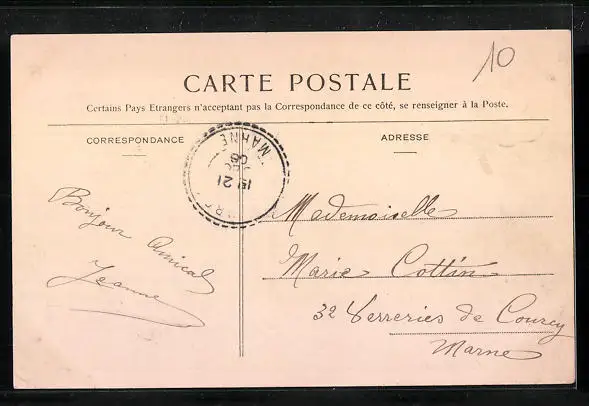 10
CARTE POSTALE
Certains Pays Etrangers n'acceptant pas la Correspondance de ce côté, se renseigner à la Poste.
CORRESPONDANCE
ADRESSE
MARNE
15 21
Bonjour Amical
Jeanne
Mademoiselle
Marie Cottin
32 Verreries de Courcy
Marne